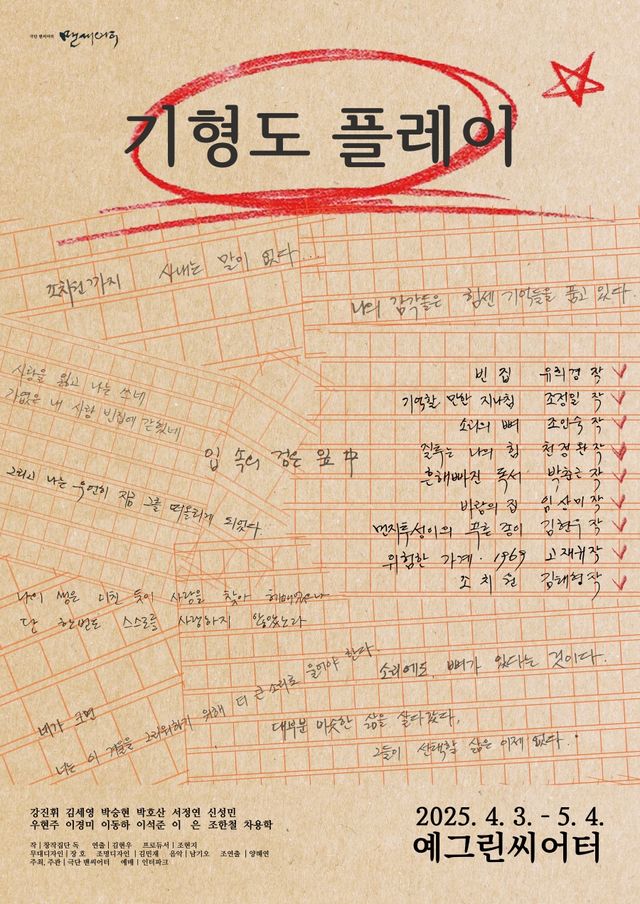 극단 맨씨어터 맨씨어터
기형도 플레이
조치원까지 사내는 말이 없다...
나의 감각들은 힘센 기억들을 품고 있다.
사랑을 잃고 나는 쓰네
가엾은 내 사랑 빈집에 갇혔네
빈 집 유희경 작
기억할 만한 지나침 조정일 작
소리의 뼈 조인숙 작
질투는 나의 힘 천정완 작
흔해빠진 독서 박춘근 작
바람의 집 임상미 작
먼지투성이의 푸른 종이 김현우 작
위험한 가계·1969 고재귀 작
조치원 김태형 작
입 속의 검은 잎 中
그리고 나는 우연히 지금 그를 떠올리게 되었다.
나의 생은 미친 듯이 사랑을 찾아 헤매었으나
단 한번도 스스로를 사랑하지 않았노라
네가
너는 이 겨울을 그리워하기 위해 더 큰 소리로 울어야 한다.
소리에도 뼈가 있다는 것이다.
대부분 비슷한 삶을 살다갔다,
그들이 선택할 삶은 이제 없다.
강진휘 김세영 박승현 박호산 서정연 신성민
우현주 이경미 이동하 이석준 이 은 조한철 차용학
작 | 창작집단 독 연출 | 김현우 프로듀서 | 조현지
무대디자인 | 장 호 조명디자인 | 김민재 음악 | 남기오 조연출 | 양혜연
주최, 주관 | 극단 맨씨어터 예매 | 인터파크
2025. 4. 3. - 5. 4.
예그린씨어터